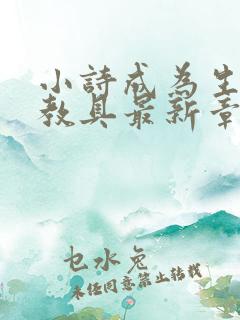 小詩成為生
教具最新章
乜水兔
未经同意禁止转载